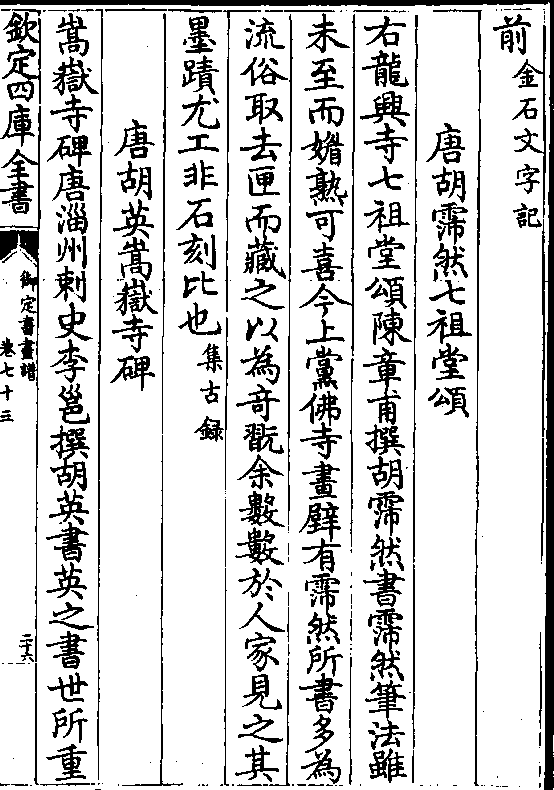 前金石文字記
唐胡霈然七祖堂頌
右龍興寺七祖堂頌陳章甫撰胡霈然書霈然筆法雖
未至而媚熟可喜今上黨佛寺畫壁有霈然所書多為
流俗取去匣而藏之以為竒翫余數數於人家見之其
墨蹟尤工非石刻比也集古録
唐胡英嵩嶽寺碑
嵩嶽寺碑唐淄州刺史李邕撰胡英書英之書世所重
欽定四庫全書
御定書畫譜
卷七十三
二十六